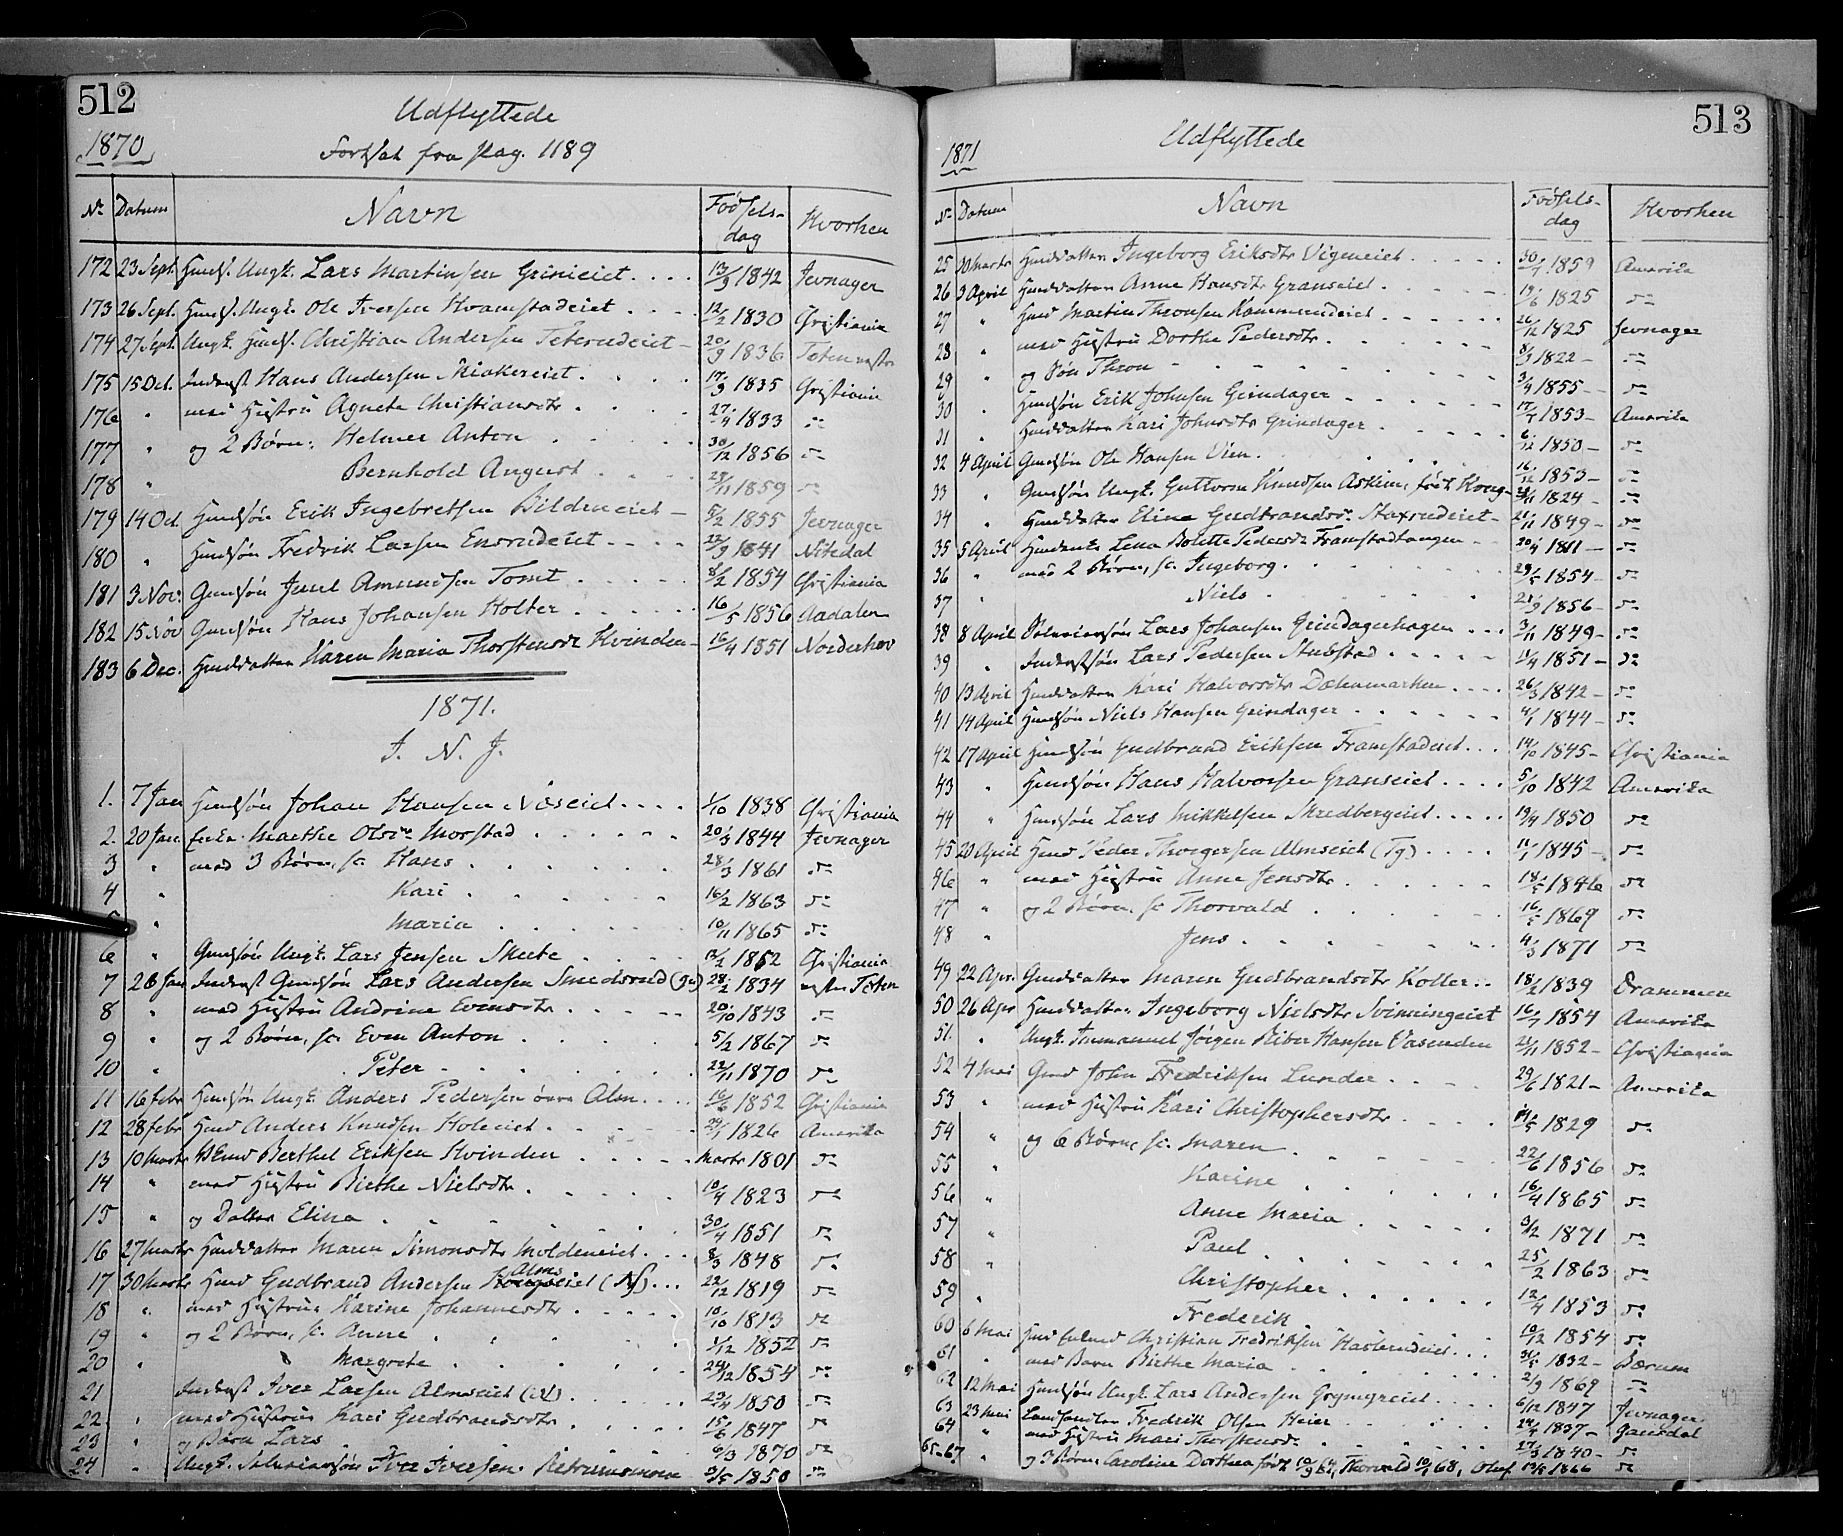 512
Udflyttede
1870
Fortsat fra pag. 1189
No Datum Navn Fødsels-dag Hvorhen
172 23 Sept. Huusf. Ungk. Lars Martinsen Grinieiet 13/9 1842 Jevnager
173 26 Sept. Huusf. Ungk. Ole Iversen Hvamstadeiet 12/2 1830 Christiania
174 27 Sept. Ungk. Huusf. Christian Andersen Teterudeiet 20/9 1836 Toten
175 15 Oct. Inderst Hans Andersen Skiakereiet 17/9 1835 Christiania
176 " med Hustru Agnete Christiansdtr 27/4 1833 do
177 " og 2 Børn: Helmer Anton 30/12 1856 do
178 " Bernhold August 28/11 1859 do
179 14 Oct. Huussøn Erik Ingebretsen Bildeneiet 5/2 1855 Jevnager
180 " Huussøn Fredrik Larsen Ensrudeiet 22/9 1841 Nitedal
181 3 Nov. Gaardsøn Juul Amundsen Tomt 8/2 1854 Christiania
182 15 Nov Gaardsøn Hans Johansen Holter 16/5 1856 Aadalen
183 6 Dec. Huusdatter Karen Maria Thorstensdr Hvinden 16/4 1851 Norderhov
1871.
I. N. J.
1. 7 Jan Huussøn Johan Hansen Næseiet 1/10 1838 Christiania
2. 20 Jan. Enke Marthe Olsdr Morstad 20/3 1844 Jevnager
3 " med 3 Børn, sc. Hans 28/3 1861 do
4 " Kari 16/2 1863 do
5 " Maria 10/11 1865 do
6 " Gaardsøn Ungk. Lars Jensen Skute 12/2 1852 Christiania
7 26 Jan Inderst Gaardsøn Lars Andersen Smedsrud 28/2 1834 vestre Toten
8 " med Hustru Andrine Evensdtr 20/10 1843 do
9 " og 2 Børn, sc. Even Anton 5/2 1867 do
10 " Peter 22/11 1870 do
11 16 febr Huussøn Ungk. Anders Pedersen øvre Alm 16/6 1852 Christiania
12 28 febr Huusmd Anders Knudsen Holeiet 29/1 1826 Amerika
13 10 Marts Berthel Eriksen Hvinden Marts 1801 do
14 " med Hustru Birthe Nielsdtr 10/4 1823 do
15 " og Datter Elina 30/4 1851 do
16 27 Marts Huusdatter Maren Simonsdtr Moldeneiet 8/3 1848 do
17 30 Marts Huusmd Gudbrand Andersen Alms eiet 22/12 1819 do
18 " med Hustru Karine Johannesdtr 10/10 1813 do
19 " og 2 Børn, sc. Anne 1/12 1852 do
20 " Margrete 24/12 1854 do
21 Inderst Iver Larsen Almseiet 23/4 1850 do
22 " med Hustru Kari Gudbrandsdtr 15/6 1847 do
23 " og Børn Lars 6/3 1870 do
24 " Ungk. Iver Iversen 1850 do
513
Udflyttede
1871
No Datum Navn Fødsels-dag Hvorhen
25 30 Marts Huusdatter Ingeborg Eriksdtr Vigmeiet 30/4 1859 Amerika
26 3 April Huusdatter Anne Hansdtr Granseiet 19/6 1825 do
27 " Huusmd Martin Thronsen Kammerudeiet 26/12 1825 Jevnager
28 " med Hustru Dorthe Pedersdtr 8/3 1822 do
29 " og Søn Thron 3/4 1855 do
30 " Huusøn Erik Johnsen Grindager 17/5 1853 Amerika
31 " Huusdatter Kari Johnsdtr Grindager 6/12 1850 do
32 4 April Gaardsøn Ole Hansen Vien 16/12 1853 do
33 " Gaardsøn Ungk. Guttorm Knudsen Askim, født 1824 do
34 " Huusdatter Eline Gudbrandsdr. Staxrudeiet 21/11 1849 do
35 5 April Lena Bolette Pedersdr Framstadtangen 20/4 1811 do
36 " med 2 Børn, sc. Ingeborg 29/5 1854 do
37 " Niels 21/9 1856 do
38 8 April Lars Johansen Grindagerhagen 3/11 1849 do
39 " Inderstsøn Lars Pedersen Stubstad 11/4 1851 do
40 13 April Huusdatter Kari Halvorsdtr Dælenmarken 26/3 1842 do
41 14 April Huusøn Niels Hansen Grindager 4/1 1844 do
42 17 April Huusøn Gudbrand Eriksen Framstadeiet 14/10 1845 Christiania
43 " Huusøn Hans Halvorsen Granseiet 5/10 1842 Amerika
44 " Huusøn Lars Mikkelsen Skredbergeiet 19/4 1850 do
45 20 April Huusmd Peder Thorgersen Almseiet (Tg) 11/1 1845 do
46 " med Hustru Anne Jensdtr 18/5 1846 do
47 " og 2 Børn, sc. Thorvald 16/5 1869 do
48 " Jens 4/3 1871 do
49 22 Apr. Gaarddatter Maren Gudbrandsdtr Koller 18/2 1839 Drammen
50 26 Apr Huusdatter Ingeborg Nielsdtr Svinningeiet 16/7 1854 Amerika
51. " Ungk. Immanuel Jörgen Riber Hansen Vasenden 21/11 1852 Christiania
52 4 Mai Gaardmd John Fredriksen Lunder 29/6 1821 Amerika
53 " med Hustru Kari Christophersdtr 1829 do
54 " og 6 Børn, sc. Maren 22/6 1856 do
55 " Karine 16/4 1865 do
56 " Anne Maria 3/2 1871 do
57 " Paul 25/2 1863 do
58 " Christopher 12/4 1853 do
59 " Frederik 10/12 1854 do
60 6 Mai Christian Fredriksen 1832 Bærum
61 " med Barn Birthe Maria 2/9 1869 do
62 12 Mai Huusøn Ungk. Lars Andersen Grymyreiet 6/12 1847 Jevnager
63 23 Mai Landhandler Fredrik Olsen Heier 24/4 1837 Gausdal
64 " med Hustru Mari Thorstensdr 27/3 1840 do
65-67 " og 3 Børn, Caroline Dorthea født 10/9 64, Thorvald 10/1 68, Oluf 13/8 1866 do